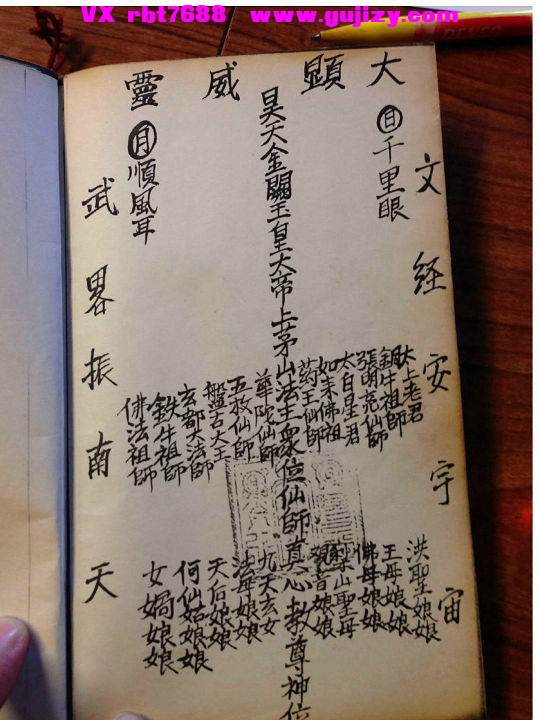 VX rbt7688 www.gujizy.com
大顯威靈
日千里眼
月順風耳
文經安宇宙
武畧振南天
昊天金闕玉皇大帝上茅山法主眾位仙師真心教尊神位
太上老君
銅牛祖師
張明亮仙師
太白星君
如來佛祖
药王仙師
華陀仙師
五救仙師
盤古大王
玄都大法師
鉄牛祖師
佛法祖師
洪聖娘娘
王母娘娘
佛母娘娘
山聖母
觀音娘娘
九天玄女
法母娘娘
天后娘娘
何仙姑娘娘
女媧娘娘